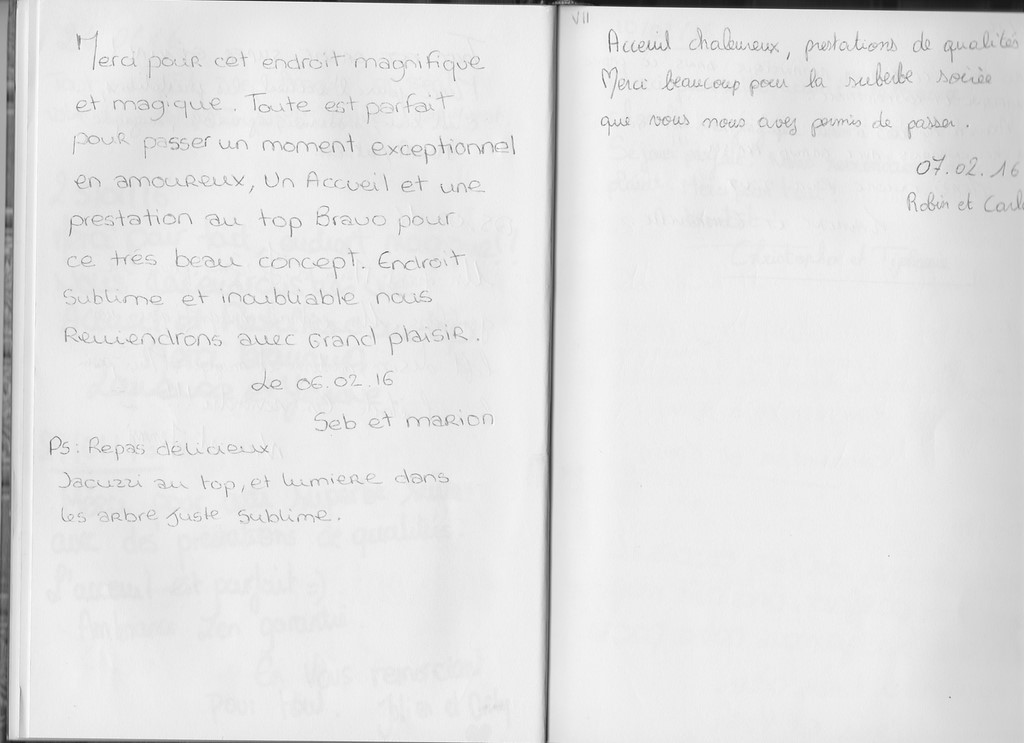 Merci pour cet endroit magnifique
et magique. Toute est parfait
pour passer un moment exceptionnel
en amoureux, Un Accueil et une
prestation au top Bravo pour
ce très beau concept. Endroit
Sublime et inoubliable nous
Reviendrons avec Grand plaisir.
Le 06.02.16
Seb et marion
Ps: Repas délicieux
Jacuzzi au top, et lumiere dans
les arbre juste sublime.
VII
Acceuil chaleureux, prestations de qualités
Merci beaucoup pour la suberbe soirée
que vous nous avez permis de passer.
07.02.16
Robin et